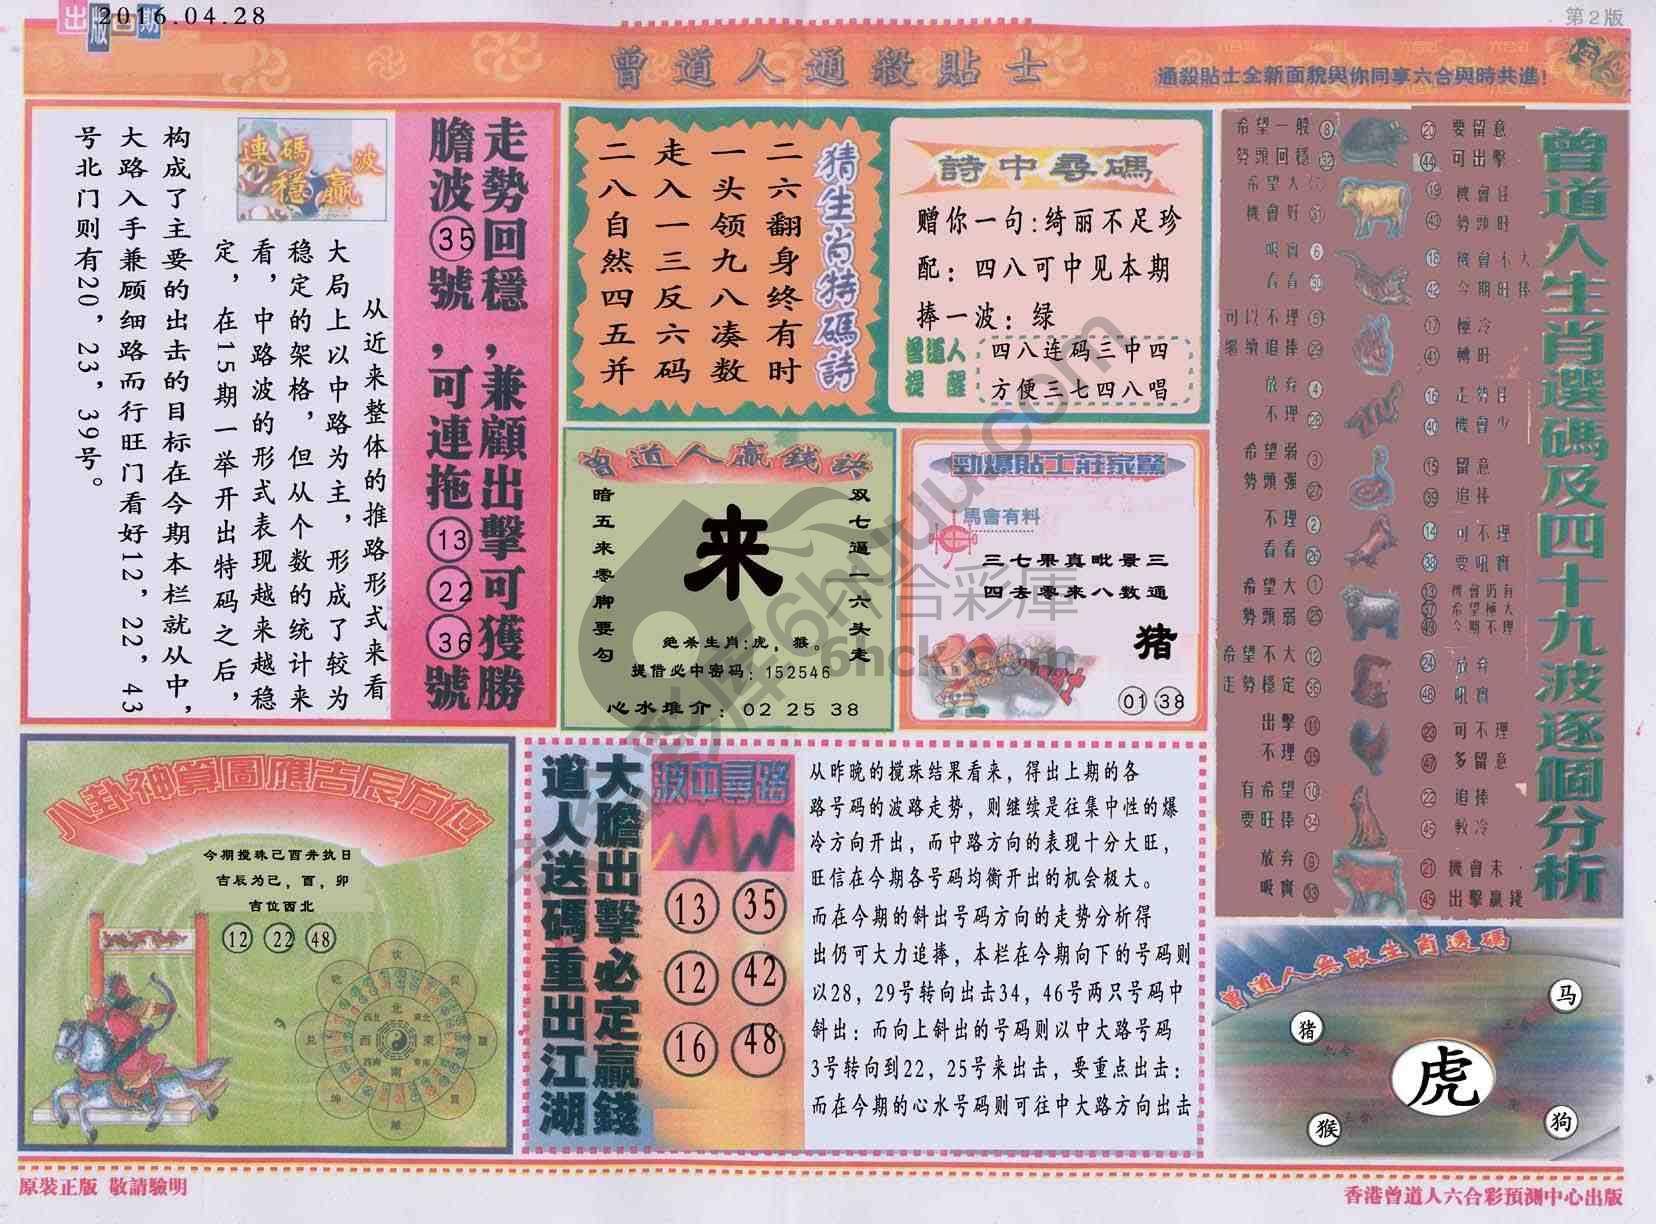 出版日期
2016.04.28
第2版
曾道人通殺貼士
通殺貼士全新面貌與你同享六合與時共進!
走勢回穩,兼顧出擊可獲勝
膽波35號,可連拖132236號
連碼穩贏波
从近来整体的推路形式来看
大局上以中路为主,形成了较为
稳定的架格,但从个数的统计来
看,中路波的形式表现越来越稳
定,在15期一举开出特码之后,
构成了主要的出击的目标在今期本栏就从中,
大路入手兼顾细路而行旺门看好12,22,43
号北门则有20,23,39号。
猜生肖特碼詩
二六翻身终有时
一头领九八凑数
走入一三反六码
二八自然四五并
詩中尋碼
赠你一句:绮丽不足珍
配:四八可中见本期
捧一波:绿
曾道人提醒
四八连码三中四
方便三七四八唱
曾道人贏錢訣
双七逼一六头走
来
暗五来零脚要勾
绝杀生肖:虎,猴。
提借必中密码:152546
心水推介:02 25 38
勁爆貼士莊家驚
馬會有料
三七果真毗景三
四去零来八数通
猪
01 38
曾道人生肖選碼及四十九波逐個分析
希望一般 8
勢頭回穩 32
20 要留意
44 可出擊
希望大
機會好 31
19 機會旺
43 勢頭旺
吸實 6
看看 30
18 機會不大
42 今期旺捧
可以不理 5
繼續追捧 29
17 極冷
41 轉旺
放弃 4
不理 28
16 走勢旺
40 機會少
希望弱 3
勢頭强 27
15 留意
39 追捧
不理 2
看看 26
14 可不理
38 要吼實
希望大 1
勢頭弱 25
13 機會仍有
37 希望極大
49 今期不理
希望不大 12
走勢穩定 36
24 放弃
48 吼實
出擊 11
不理 35
23 可不理
47 多留意
有希望 10
要旺捧 34
22 追捧
46 較冷
放弃 9
吸實 33
21 機會未
45 出擊贏錢
八卦神算圖應吉辰方位
今期搅珠己酉并执日
吉辰为己,酉,卯
吉位西北
12 22 48
大膽出擊必定贏錢
道人送碼重出江湖
波中尋路
13 35
12 42
16 48
从昨晚的搅珠结果看来,得出上期的各
路号码的波路走势,则继续是往集中性的爆
冷方向开出,而中路方向的表现十分大旺,
旺信在今期各号码均衡开出的机会极大。
而在今期的斜出号码方向的走势分析得
出仍可大力追捧,本栏在今期向下的号码则
以28,29号转向出击34,46号两只号码中
斜出:而向上斜出的号码则以中大路号码
3号转向到22,25号来出击,要重点出击:
而在今期的心水号码则可往中大路方向出击
曾道人無敵生肖選碼
马
猪
虎
猴
狗
原裝正版 敬請驗明
香港曾道人六合彩預測中心出版
六合彩庫
6hck.com